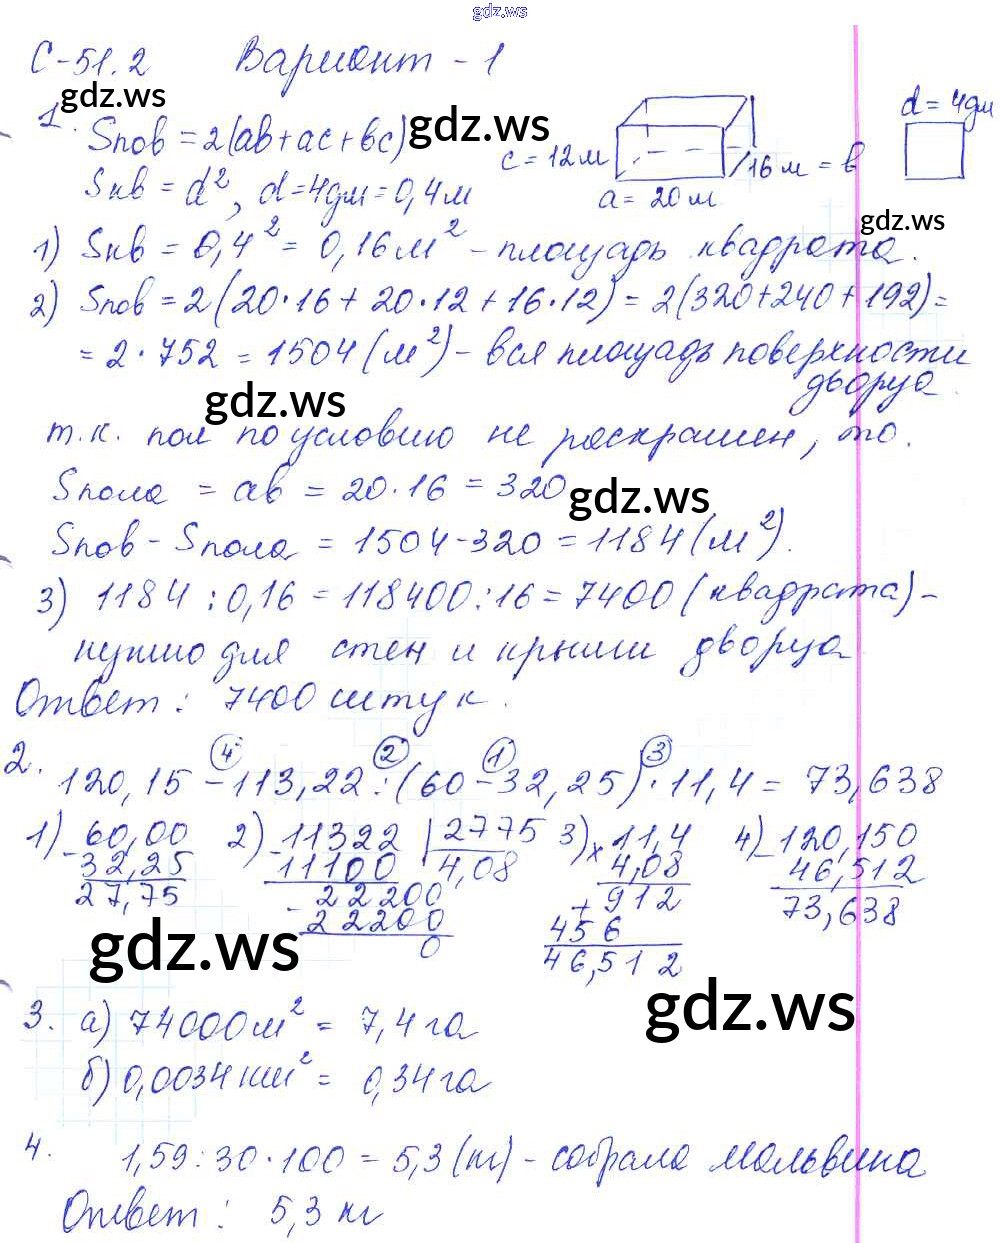 gdz.ws
С-51.2 Вариант - 1
gdz.ws
1. Sпов = 2(ab+ac+bc) gdz.ws
c = 12 м
16 м = b
a = 20 м
d = 4дм
Sкв = d², d=4дм=0,4м
gdz.ws
1) Sкв = 0,4² = 0,16м² - площадь квадрата.
2) Sпов = 2(20·16 + 20·12 + 16·12) = 2(320+240+192)=
= 2·752 = 1504(м²) - вся площадь поверхности
дворца.
gdz.ws
т.к. пол по условию не раскрашен, то.
Sпола = ab = 20·16 = 320 gdz.ws
Sпов - Sпола = 1504-320 = 1184(м²).
3) 1184 : 0,16 = 118400:16 = 7400 (квадрата) -
нужно для стен и крыши дворца
Ответ: 7400 штук.
4 2 1 3
2. 120,15 - 113,22 : (60 - 32,25) · 11,4 = 73,638
1) - 60,00
32,25
27,75
2) - 11322 | 2775
11100 4,08
- 22200
22200
0
3) × 11,4
4,08
+ 912
456
46,512
4) - 120,150
46,512
73,638
gdz.ws
gdz.ws
3. а) 74000м² = 7,4 га
б) 0,0034 км² = 0,34 га
4. 1,59:30·100 = 5,3 (кг) - собрала Мальвина
Ответ: 5,3 кг